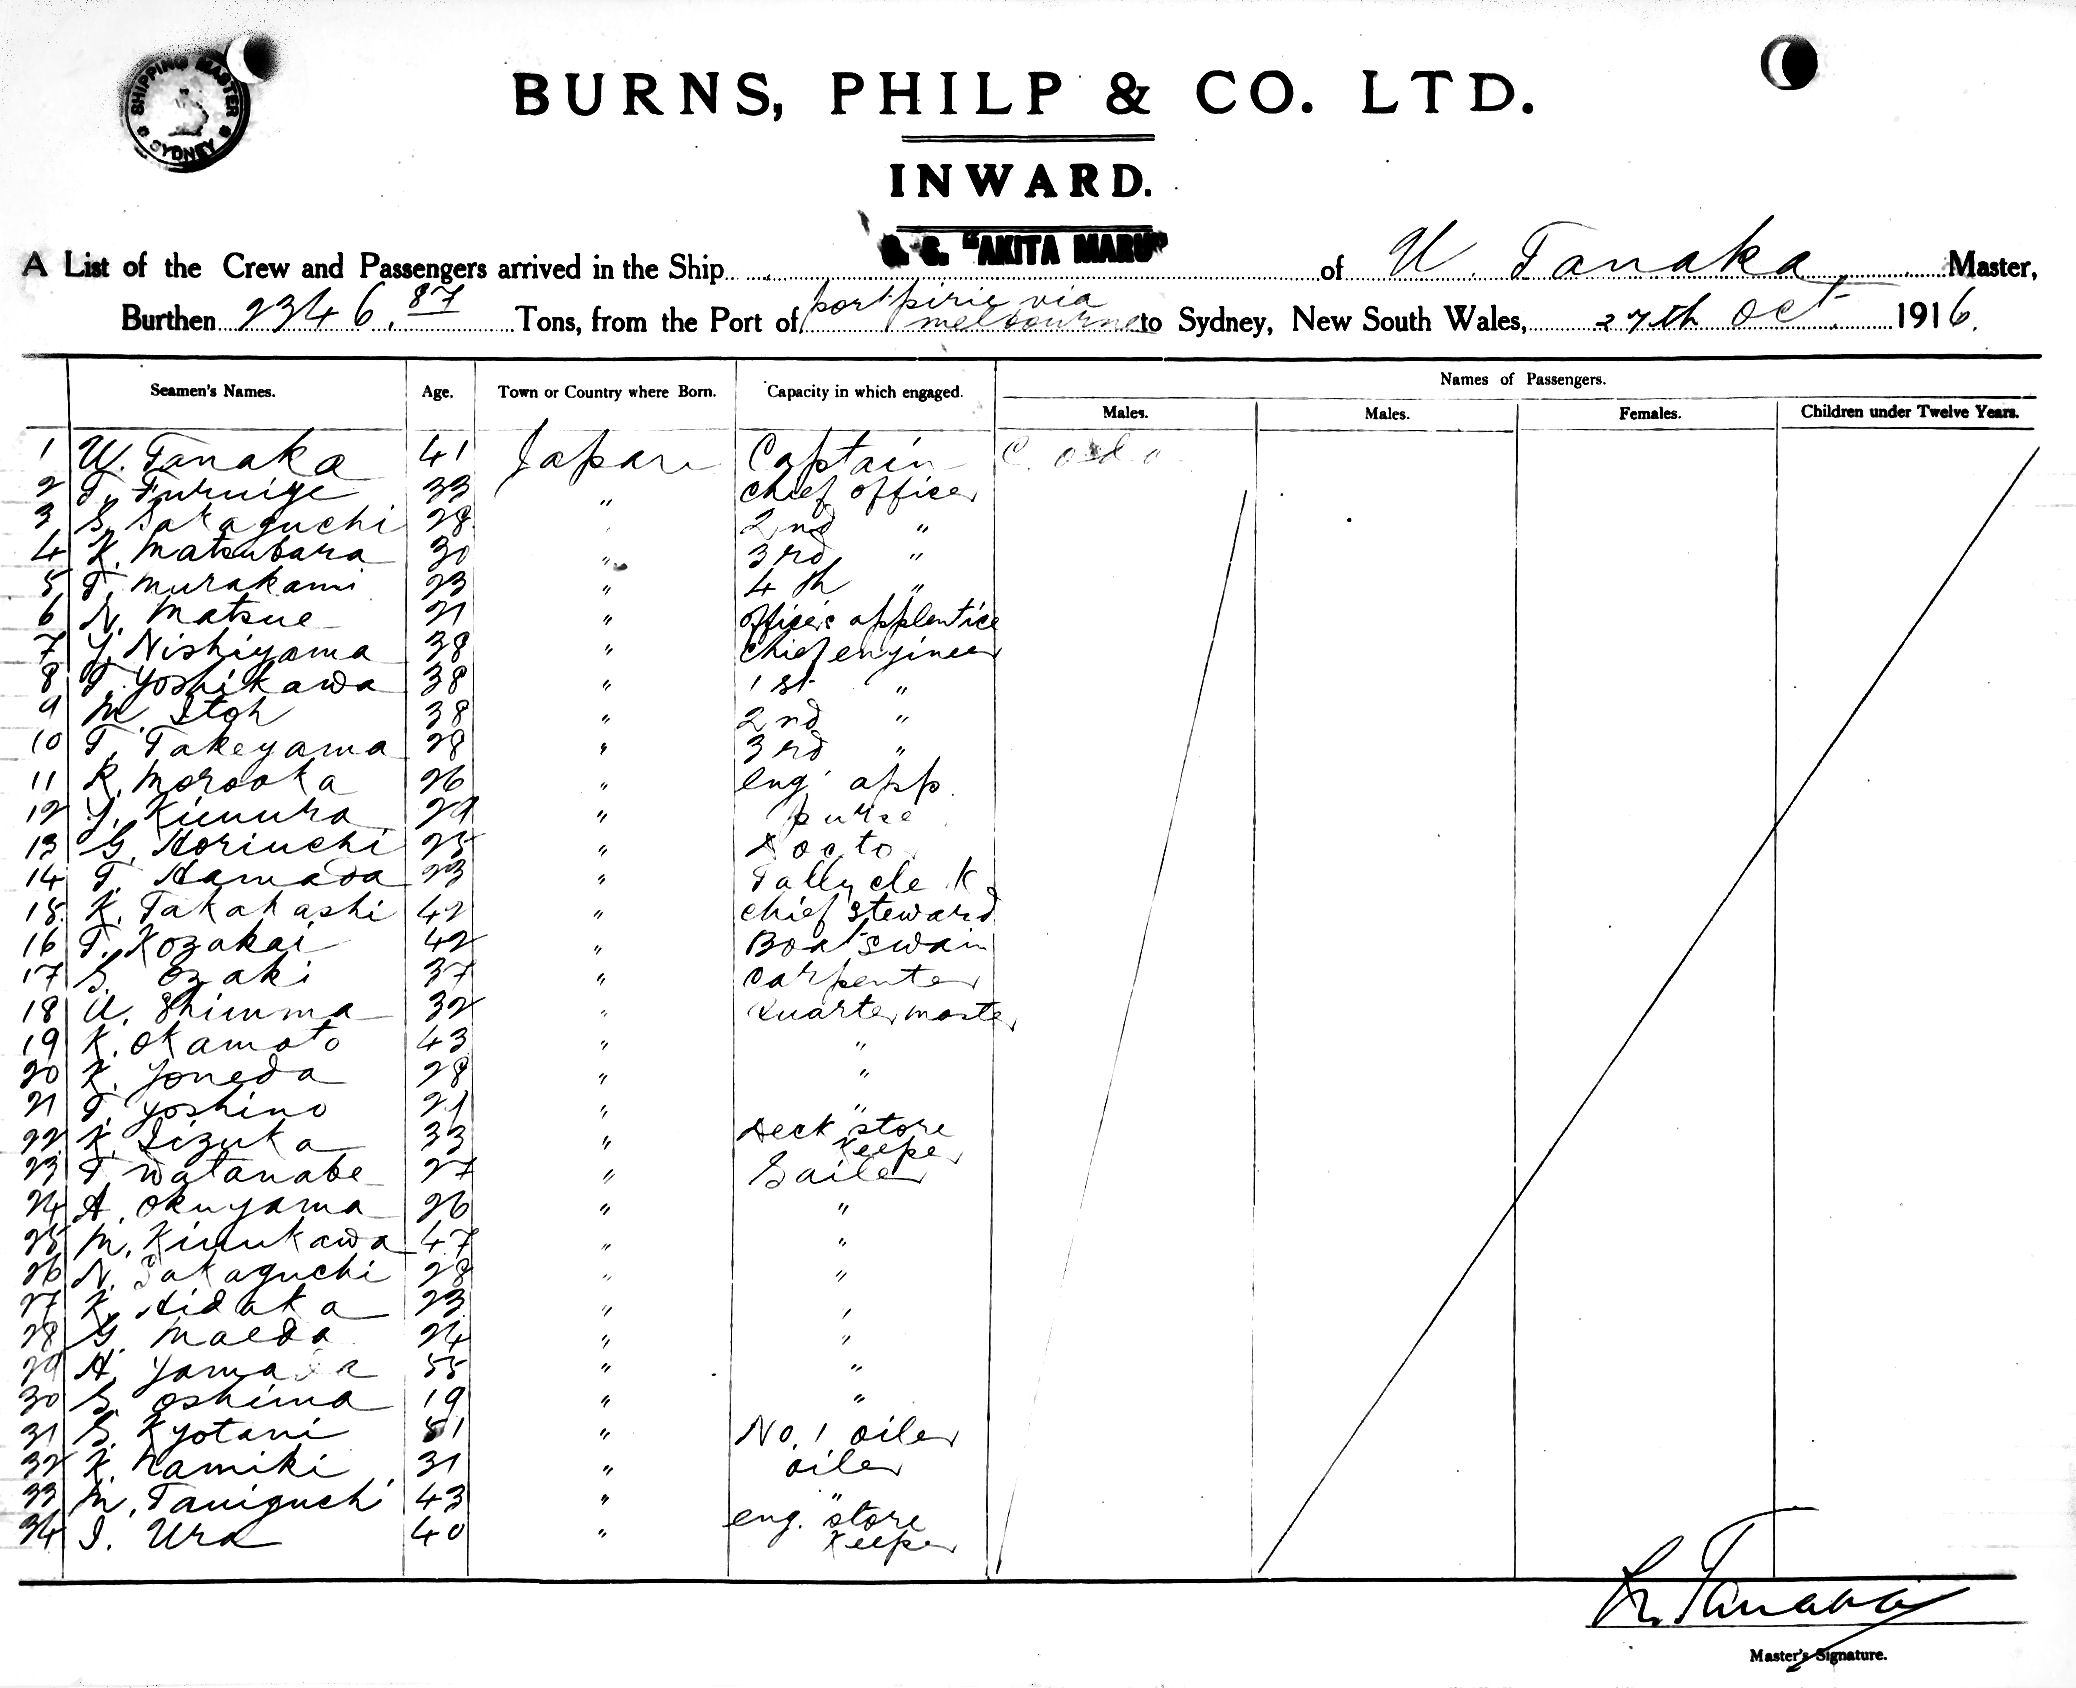 SHIPPING MASTER
SYDNEY
BURNS, PHILP & CO. LTD.
INWARD.
A List of the Crew and Passengers arrived in the Ship S. S. "AKITA MARU" of U. Tanaka Master,
Burthen 2346.87 Tons, from the Port of port pirie via melbourne to Sydney, New South Wales, 27th Oct 1916.
Seamen's Names. Age. Town or Country where Born. Capacity in which engaged. Names of Passengers.
Males. Males. Females. Children under Twelve Years.
1 U. Tanaka 41 Japan Captain C.
2 T. Furuige 33 " chief officer
3 S. Sakaguchi 28 2nd "
4 K. Matsubara 30 " 3rd "
5 T. Murakami 23 " 4th "
6 N. Matsue 21 " officer's apprentice
7 Y. Nishiyama 38 " chief engineer
8 T. Yoshikawa 38 " 1st "
9 M. Itoh 38 " 2nd "
10 T. Takeyama 28 " 3rd "
11 R. Morooka 26 " eng' app.
12 Y. Kimura 29 " purse
13 G. Horiuchi 25 " Docto
14 T. Hamada 23 " Tally cle k
15. K. Takahashi 42 " chief steward
16 T. Kozakai 42 " Boatswain
17 S. Ozaki 37 " carpenter
18 U. Shimma 32 " quarter master
19 K. Okamoto 43 " "
20 K. Yoneda 28 " "
21 T. Yoshino 21 " "
22 K. Iizuka 33 " Deck store keeper
23 T. Watanabe 27 " Sailer
24 A. Okuyama 26 " "
25 M. Kinukawa 47 " "
26 N. Takaguchi 28 " "
27 K. Hidaka 23 " "
28 G. Maeda 24 " "
29 H. Yamada 55 " "
30 S. Oshima 19 " "
31 S. Kyotani 51 " No. 1 oiler
32 K. Namiki 31 " oiler
33 M. Taniguchi 43 " "
34 I. Ura 40 " eng. store keeper
Tanaka
Master's Signature.